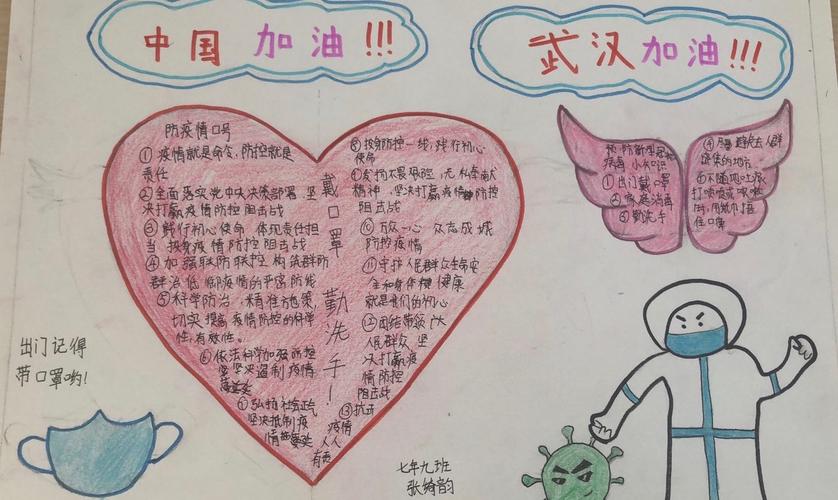 中国 加油!!!
武汉加油!!!
防疫情口号
①疫情就是命令,防控就是
责任
②全面落实党中央决策部署,坚
决打赢疫情防控阻击战
③践行初心使命 体现责任担
当 投身疫情防控阻击战
④加强联防联控 构筑群防
群治 抵御疫情的严密防线
⑤科学防治,精准施策,
切实提高疫情防控的科学
性,有效性。
⑥依法科学加强防控
坚决遏制疫情
⑦弘扬社会正气
坚决抵制疫
情
戴口罩 勤洗手!
⑧投身防控一线,践行初心
使命
无私奉献
精神,坚决打赢疫情防控
阻击战
⑩万众一心 众志成城
防控疫情
⑪守护人民群众生命安
全和身体健康
就是我们的初心
⑫团结带领广大
人民群众 坚
决打赢疫
情防控
阻击战
⑬抗击
疫情
人人
有责
预防新型冠状
病毒小知识
①出门戴口罩
②家庭消毒
③勤洗手
④避免去人群
密集的地方
⑤不随地吐痰
打喷嚏或咳嗽
时,用纸巾捂
住口鼻
出门记得
带口罩哟!
七年九班
张绮韵